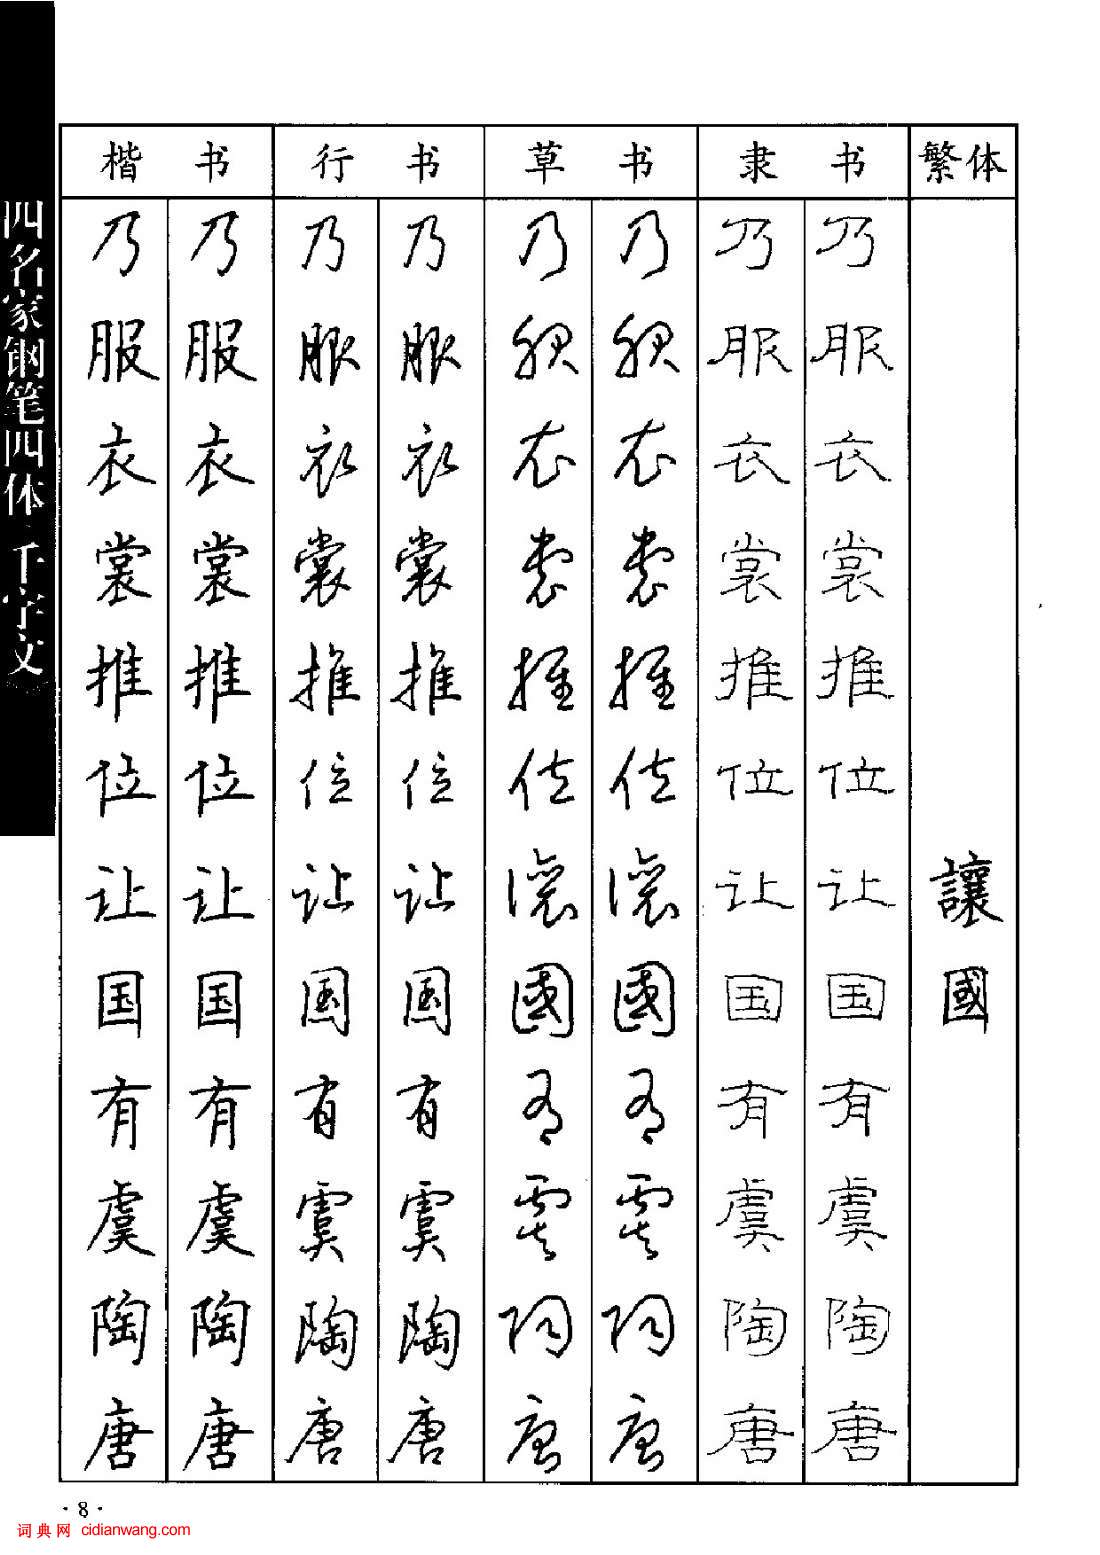 四名家钢笔四体 千字文
楷书 行书 草书 隶书 繁体
乃 乃 乃 乃 乃 乃 乃 乃
服 服 服 服 服 服 服 服
衣 衣 衣 衣 衣 衣 衣 衣
裳 裳 裳 裳 裳 裳 裳 裳
推 推 推 推 推 推 推 推
位 位 位 位 位 位 位 位
让 让 让 让 讓 讓 让 让 讓
国 国 国 国 國 國 国 国 國
有 有 有 有 有 有 有 有
虞 虞 虞 虞 虞 虞 虞 虞
陶 陶 陶 陶 陶 陶 陶 陶
唐 唐 唐 唐 唐 唐 唐 唐
·8·
词典网 cidianwang.com